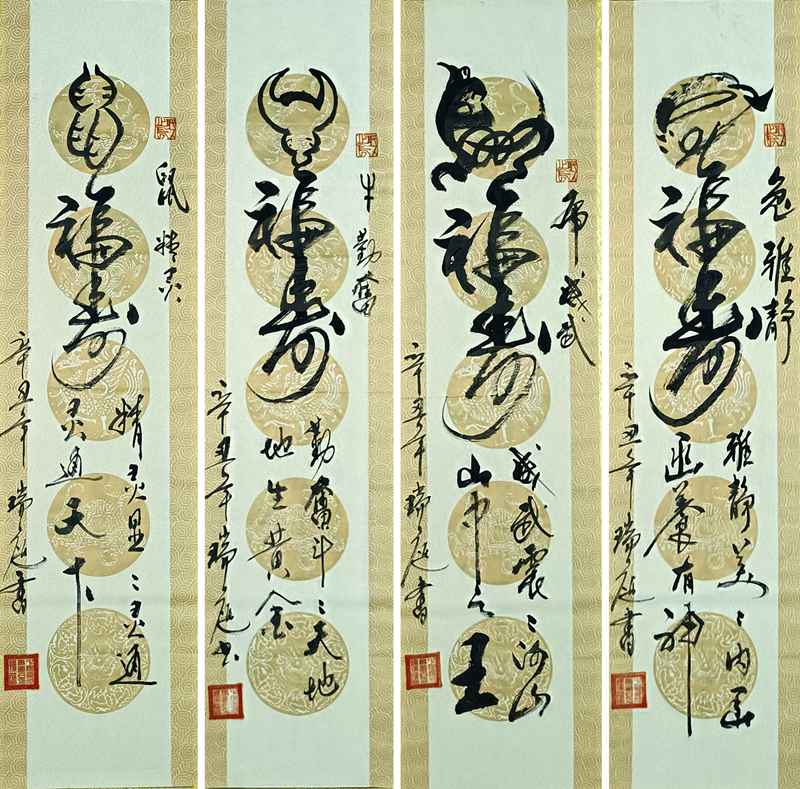 鼠精灵
鼠福寿
精灵显〻灵通
灵通天下
辛丑年瑞庭書
牛勤奮
牛福寿
勤奮斗〻天地
地生黄金
辛丑年瑞庭书
虎威武
虎福寿
威武震〻河山
山中之王
辛丑年瑞庭書
兔雅静
兔福寿
雅静美〻内涵
涵養有神
辛丑年瑞庭書